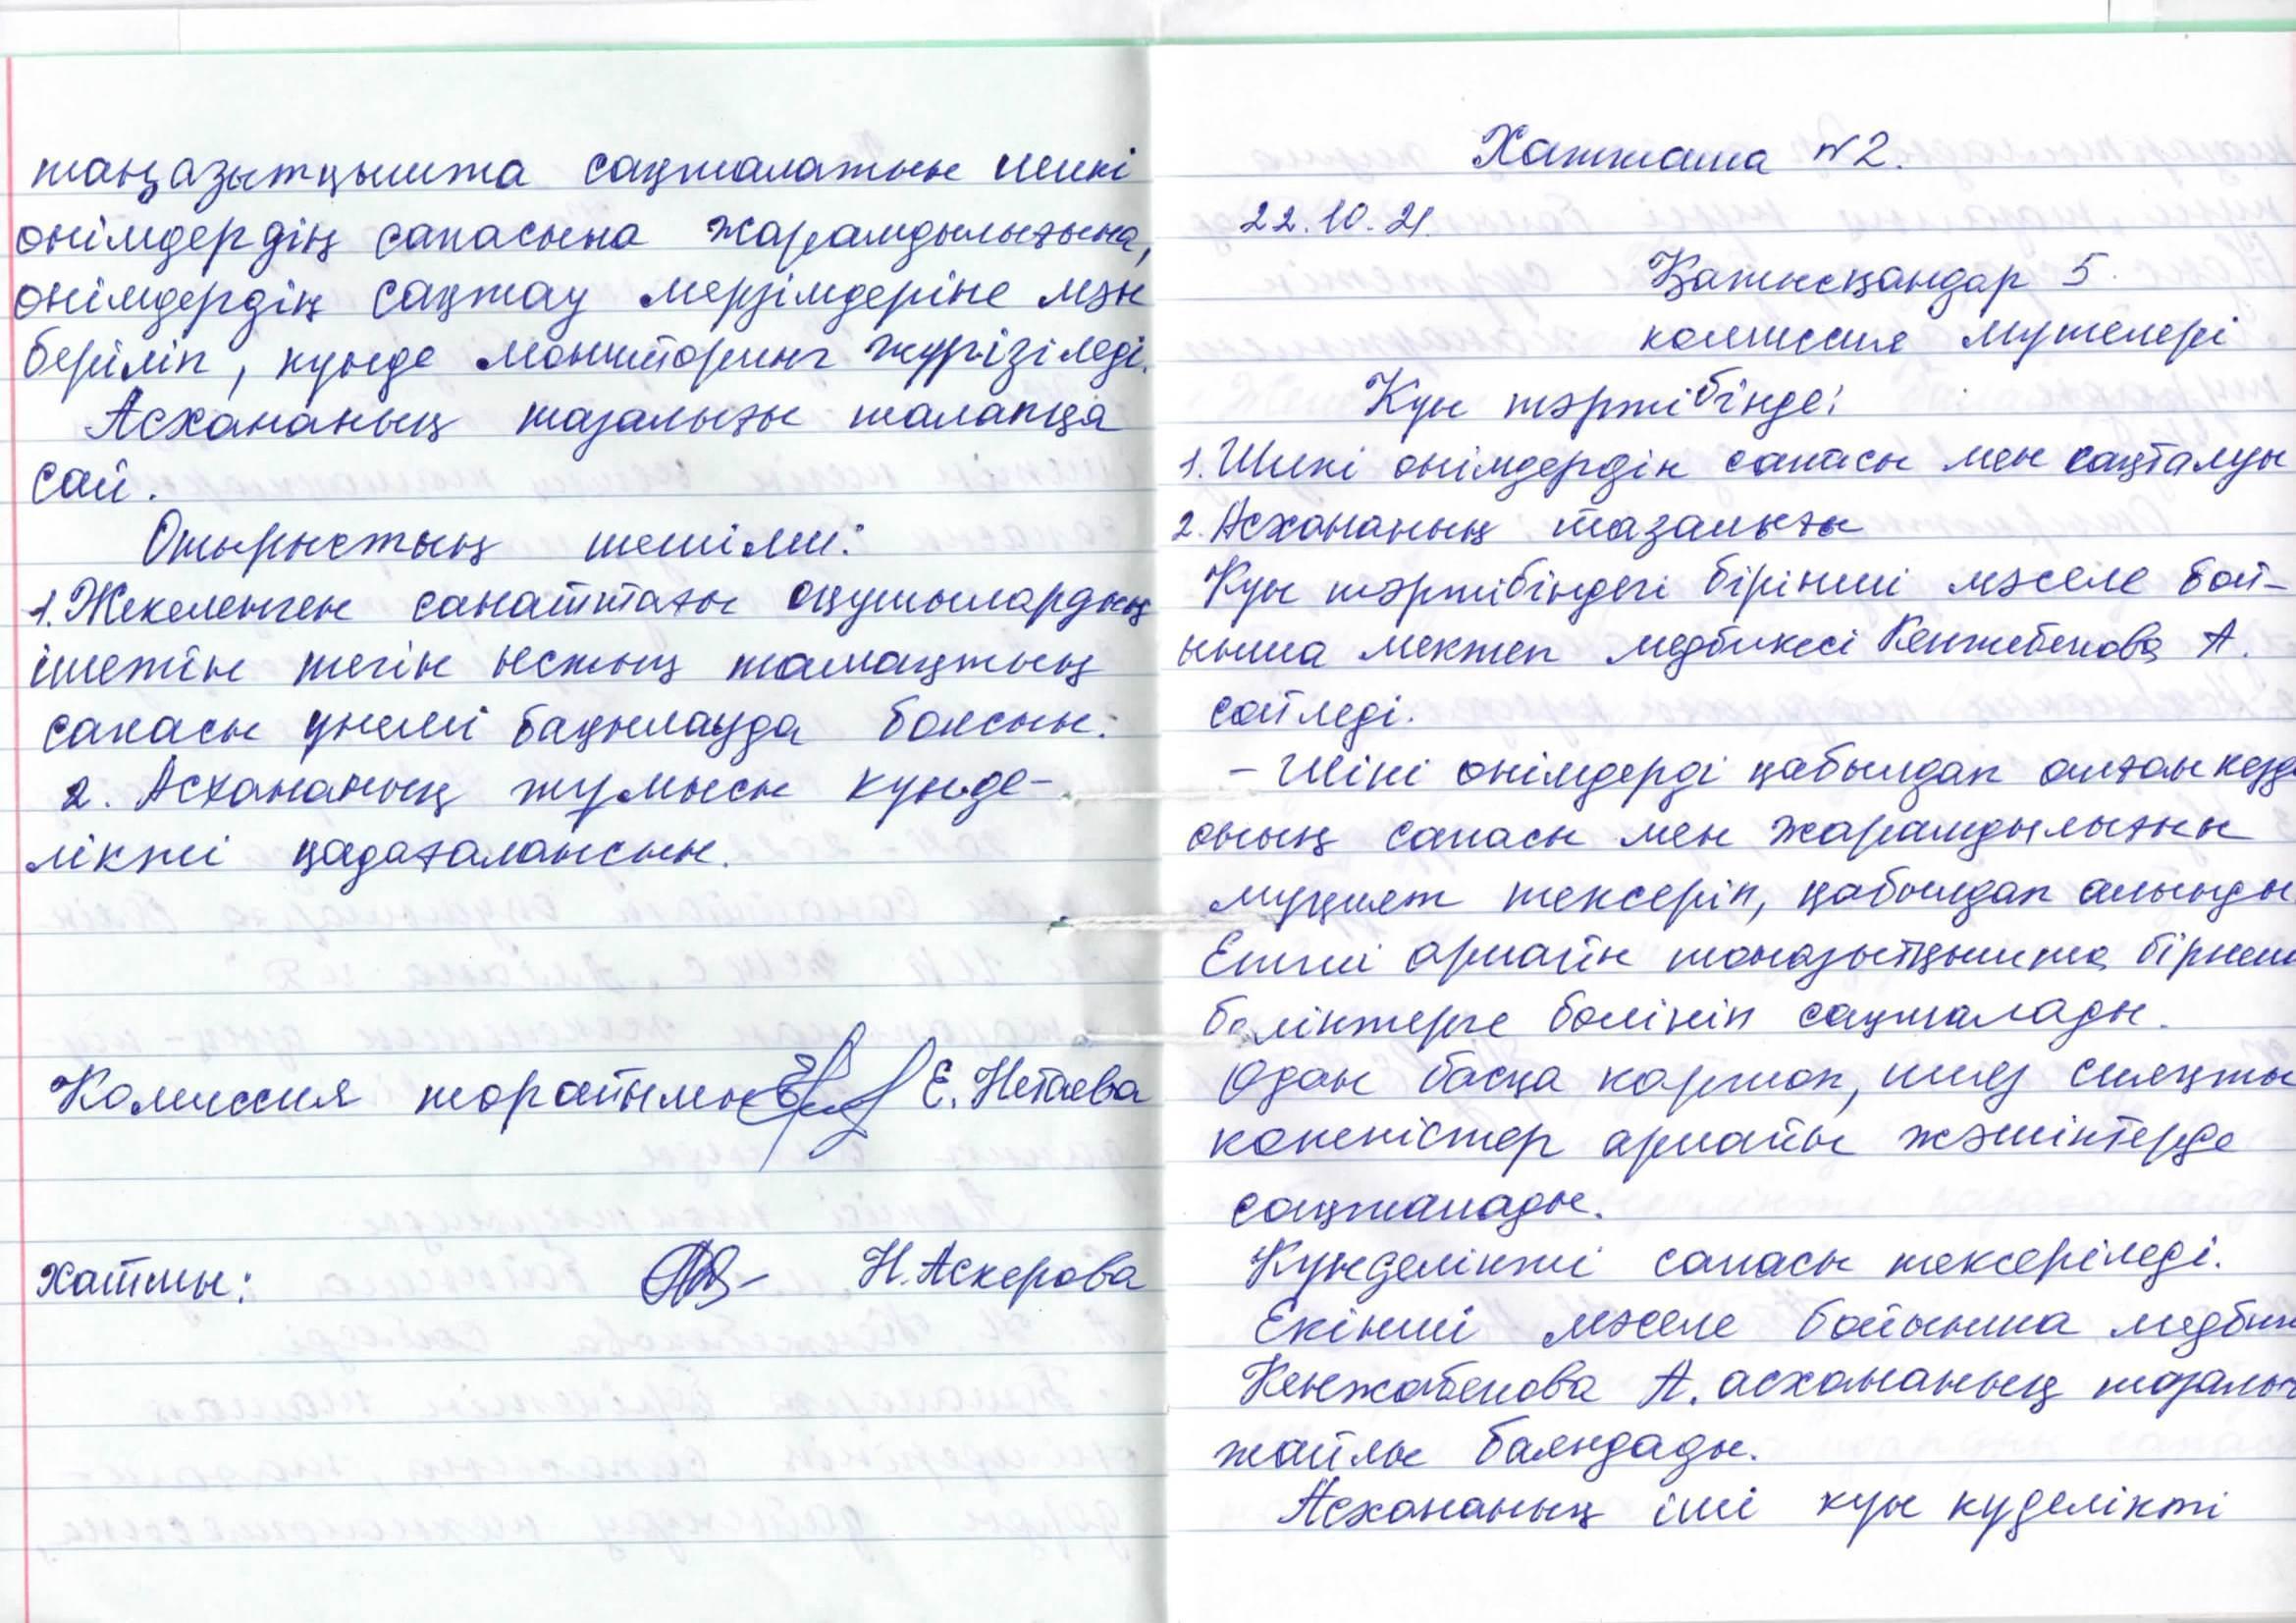 таңазытқышта сақталатын шикі
өнімдердің сапасына жарамдылығына,
өнімдердің сақтау мерзімдеріне мән
беріліп, күнде мониторинг жүргізіледі.
Асхананың тазалығы талапқа
сай.
Отырыстың шешімі:
1. Жекеленген санаттағы оқушылардың
ішетін тегін ыстық тамақтың
сапасы үнемі бақылауда болсын.
2. Асхананың жұмысы күнде-
лікті қадағалансын.
Комиссия төрайымы Е.
хатшы: Н. Аскерова
Хаттама №2.
22.10.21.
Қатысқандар 5
комиссия мүшелері
Күн тәртібінде:
1. Шикі өнімдердін сапасы мен сақталуы
2. Асхананың тазалығы
Күн тәртібіндегі бірінші мәселе бой-
ынша мектеп медбикесі Кенжебекова А.
сөйледі.
- Шикі өнімдерді қабылдап алған кезде
оның сапасы мен жарамдылығын
мұқият тексеріп, қабылдап алынды
Етті арнайы тоңазытқышта бірнеше
бөліктерге бөлініп сақталады.
Одан басқа картоп, пияз сияқты
көкөністер арнайы жәшіктерде
сақталады.
Күнделікті сапасы тексеріледі.
Екінші мәселе бойынша медбик
Кенжебекова А. асхананың тазалығ
жайлы баяндады.
Асхананың іші күн күделікті